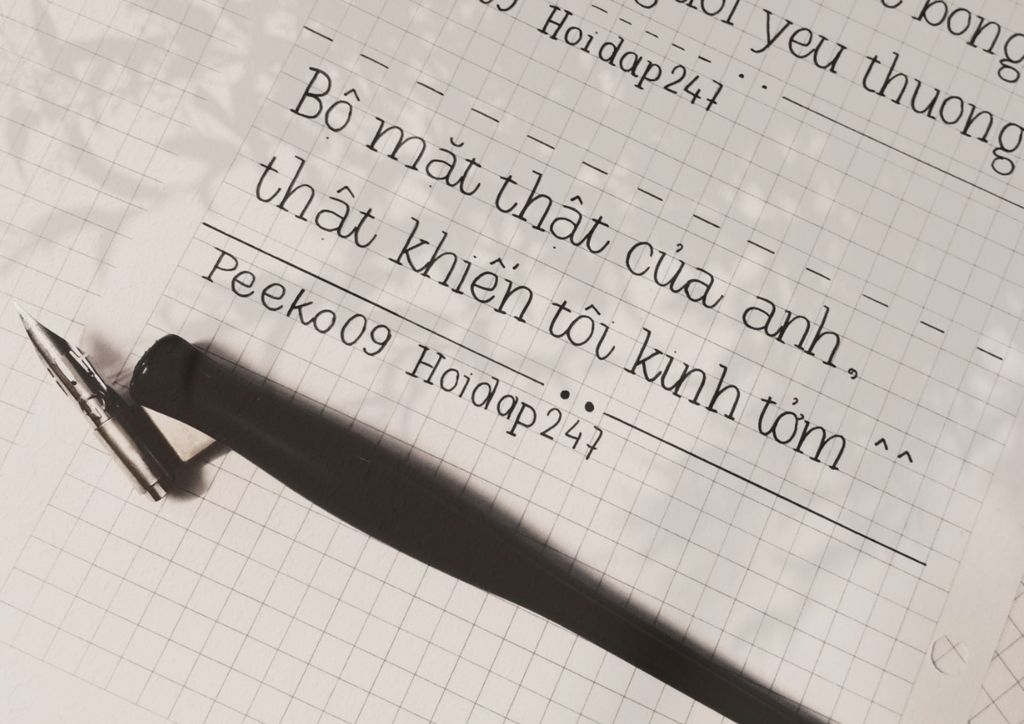 bong
yeu thuong
09 Hoidap247
Bộ mặt thật của anh,
thật khiến tôi kinh tởm ^^
Peeko09 Hoidap247